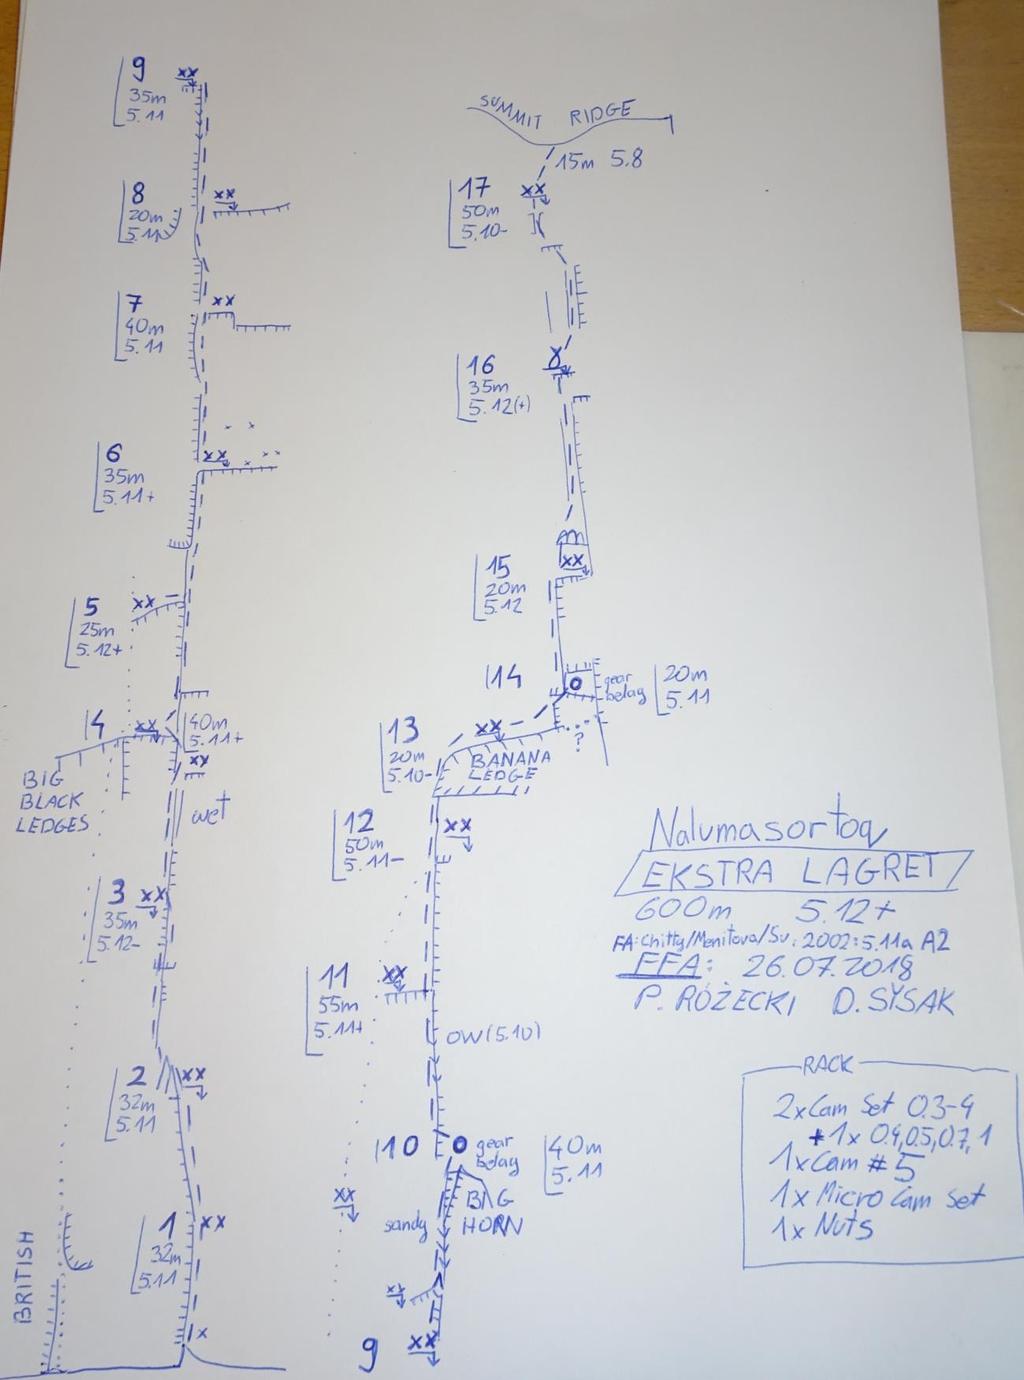 9
35m
5.11
8
20m
5.11
7
40m
5.11
6
35m
5.11+
5
25m
5.12+
4
40m
5.11+
BIG
BLACK
LEDGES
wet
3
35m
5.12-
2
32m
5.11
1
32m
5.11
BRITISH
SUMMIT RIDGE
15m 5.8
17
50m
5.10-
16
35m
5.12(+)
15
20m
5.12
14
gear
belay
20m
5.11
?
13
20m
5.10-
BANANA
LEDGE
12
50m
5.11-
11
55m
5.11+
OW(5.10)
10
gear
belay
40m
5.11
BIG
HORN
sandy
9
Nalumasortoq
EKSTRA LAGRET
600m 5.12+
FA: Chitty/Menitova/Sv.: 2002: 5.11a A2
FFA: 26.07.2018
P. RÓŻECKI D. SYSAK
RACK
2xCam Set 0.3-4
+1x 0.4,0.5,0.7,1
1xCam #5
1x Micro Cam Set
1x Nuts